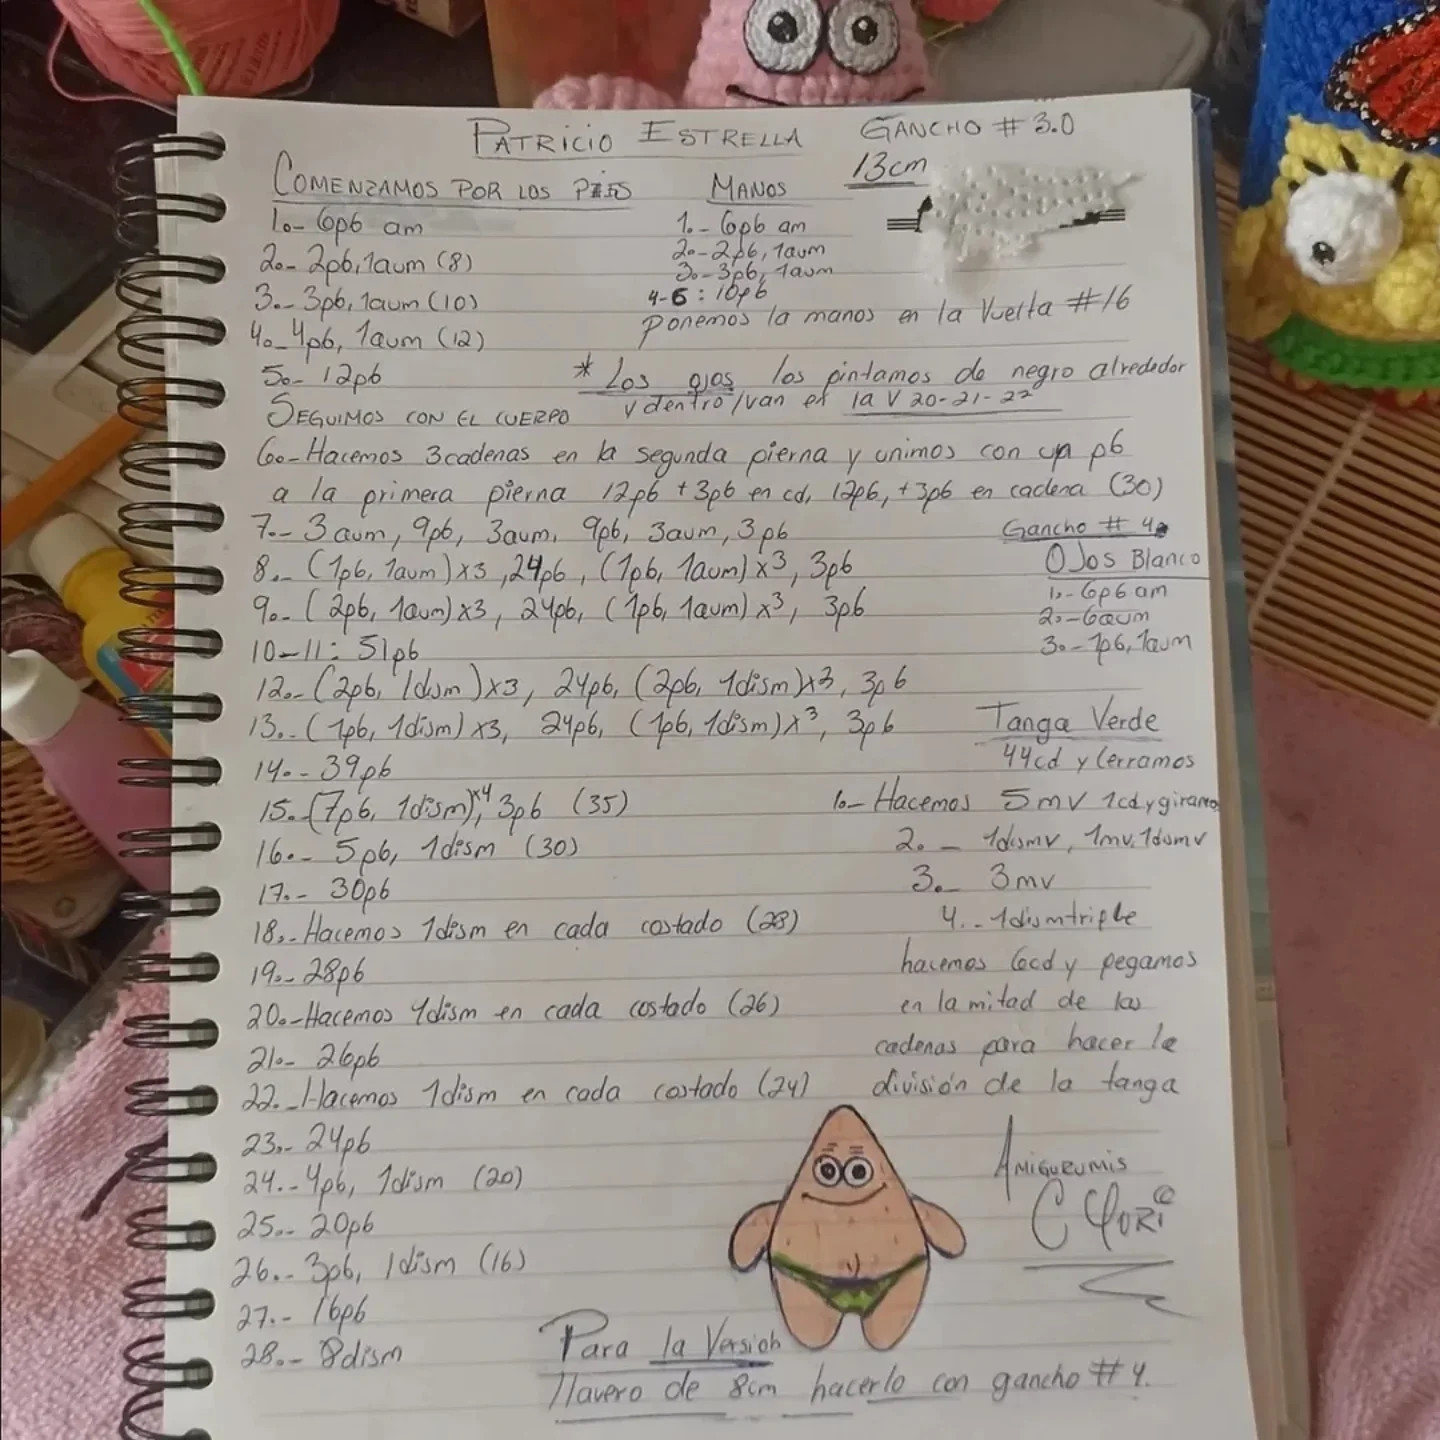 PATRICIO ESTRELLA
GANCHO # 3.0
13cm
COMENZAMOS POR LOS PIES
1.- 6pb am
2.- 2pb, 1aum (8)
3.- 3pb, 1aum (10)
4.- 4pb, 1aum (12)
5.- 12pb
MANOS
1.- 6pb am
2.- 2pb, 1aum
3.- 3pb, 1aum
4-6: 10pb
ponemos la manos en la Vuelta #16
* Los ojos los pintamos de negro alrededor
y dentro / van en la V 20-21-22
SEGUIMOS CON EL CUERPO
6.- Hacemos 3cadenas en la segunda pierna y unimos con un pb
a la primera pierna 12pb + 3pb en cd, 12pb, +3pb en cadena (30)
7.- 3aum, 9pb, 3aum, 9pb, 3aum, 3pb
8.- (1pb, 1aum)x3, 24pb, (1pb, 1aum)x3, 3pb
9.- (2pb, 1aum)x3, 24pb, (1pb, 1aum)x3, 3pb
10-11: 51pb
12.- (2pb, 1dism)x3, 24pb, (2pb, 1dism)x3, 3pb
13.- (1pb, 1dism)x3, 24pb, (1pb, 1dism)x3, 3pb
14.- 39pb
15.- (7pb, 1dism)x4, 3pb (35)
16.- 5pb, 1dism (30)
17.- 30pb
18.- Hacemos 1dism en cada costado (28)
19.- 28pb
20.- Hacemos 1dism en cada costado (26)
21.- 26pb
22.- Hacemos 1dism en cada costado (24)
23.- 24pb
24.- 4pb, 1dism (20)
25.- 20pb
26.- 3pb, 1dism (16)
27.- 16pb
28.- 8dism
Gancho # 4
Ojos Blanco
1.- 6pb am
2.- 6aum
3.- 1pb, 1aum
Tanga Verde
44cd y Cerramos
1.- Hacemos 5mv 1cd y giramos
2.- 1dismv, 1mv, 1dismv
3.- 3mv
4.- 1dismtriple
hacemos 6cd y pegamos
en la mitad de las
cadenas para hacer la
división de la tanga
AMIGURUMIS
Para la Version
llavero de 8cm hacerlo con gancho # 4.